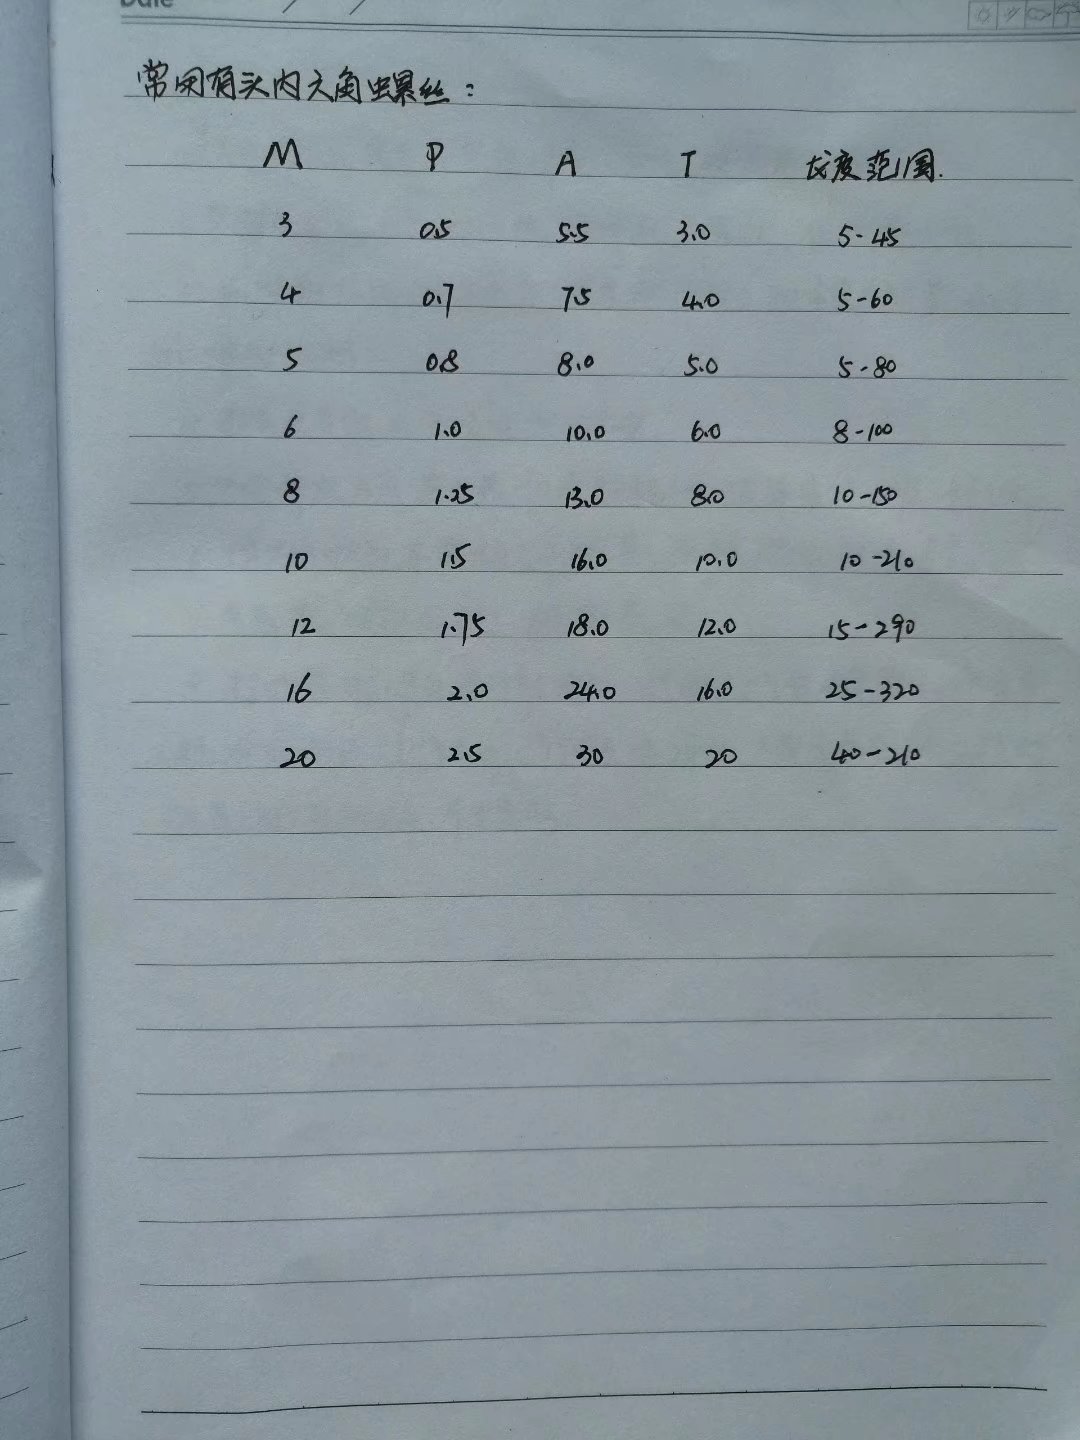 Date / /
常用有头内六角螺丝：
M P A T 长度范围.
3 0.5 5.5 3.0 5-45
4 0.7 7.5 4.0 5-60
5 0.8 8.0 5.0 5-80
6 1.0 10.0 6.0 8-100
8 1.25 13.0 8.0 10-150
10 1.5 16.0 10.0 10-210
12 1.75 18.0 12.0 15-290
16 2.0 24.0 16.0 25-320
20 2.5 30 20 40-210